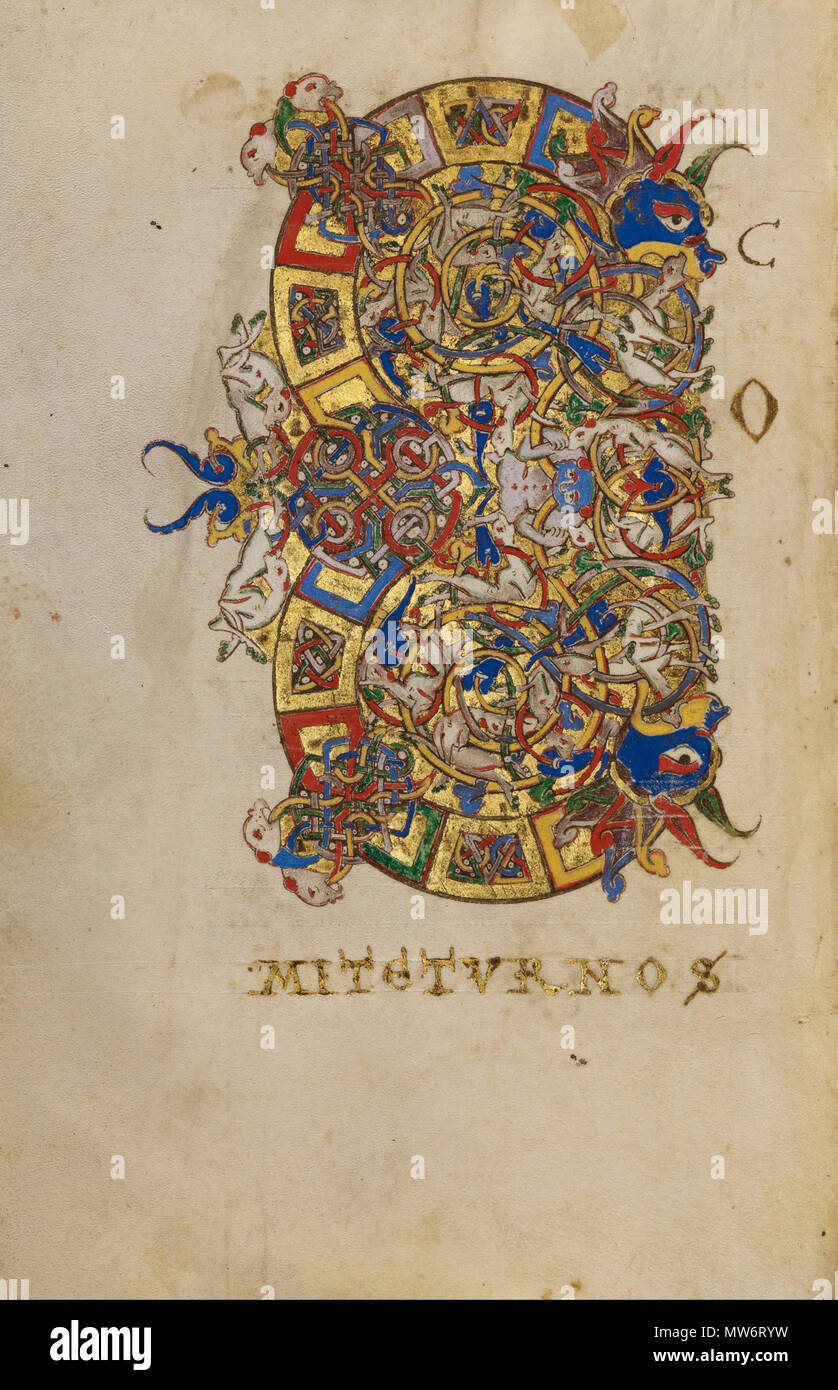 E
C
O
MITETVRNOS
a
alamy
Image ID: MW6RYW
www.alamy.com